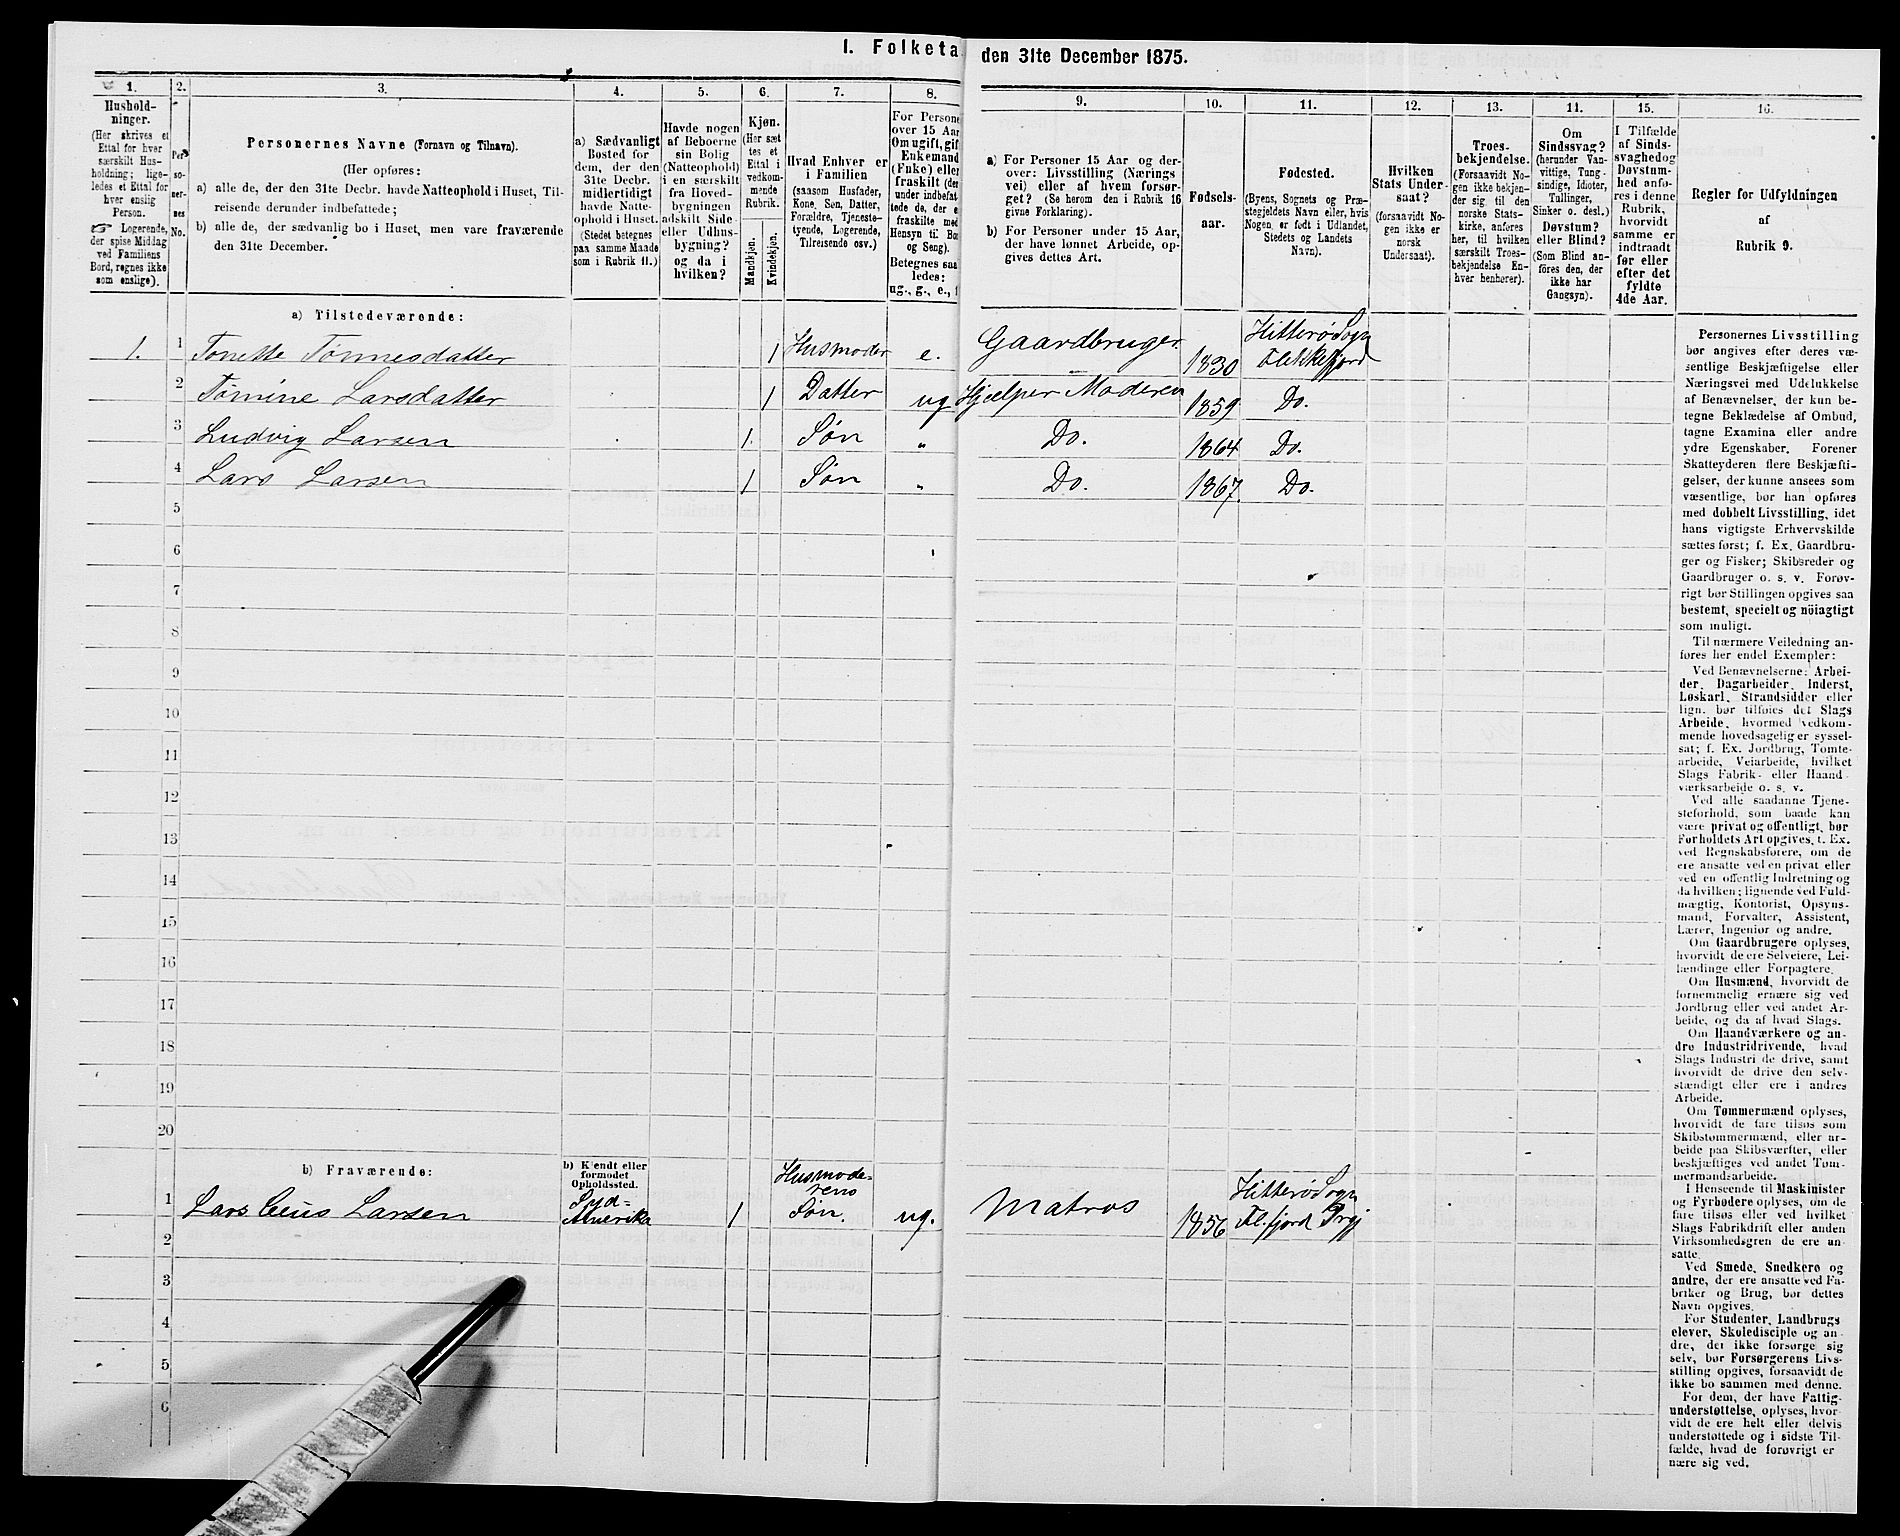 I. Folketa
den 31te December 1875.
1.
2.
3.
4.
5.
6.
7.
8.
9.
10.
11.
12.
13.
11.
15.
16.
Hushold-
ninger.
(Her skrives et
Ettal for hver
særskilt Hus-
holdning; lige-
ledes et Ettal for
hver enslig
Person.
Logerende,
der spise Middag
ved Familiens
Bord, regnes ikke
som enslige).
Per-
so-
ner-
nes
No.
Personernes Navne (Fornavn og Tilnavn).
(Her opføres:
a) alle de, der den 31te Decbr. havde Natteophold i Huset, Til-
reisende derunder indbefattede;
b) alle de, der sædvanlig bo i Huset, men vare fraværende
den 31te December.
a) Sædvanligt
Bosted for
dem, der den
31te Decbr.
midlertidigt
havde Natte-
ophold i Huset.
(Stedet betegnes
paa samme Maade
som i Rubrik 11.)
Havde nogen
af Beboerne
sin Bolig
(Natteophold)
i en særskilt
fra Hoved-
bygningen
adskilt Side-
eller Udhus-
bygning?
og da i
hvilken?
Kjøn.
(Her sæt-
tes et
Ettal i
vedkom-
mende
Rubrik.
Mandkjøn.
Kvindekjøn.
Hvad Enhver er
i Familien
(saasom Husfader,
Kone, Søn, Datter,
Forældre, Tjeneste-
tyende, Logerende,
Tilreisende osv.)
For Persone
over 15 Aar
Om ugift, gif
Enkemand
(Enke) elle
fraskilt (der
under indbefat
tede de, der e
fraskilte med
Hensyn til Bo
og Seng).
Betegnes saa
ledes:
ug., g., e., f
a) For Personer 15 Aar og der-
over: Livsstilling (Nærings
vei) eller af hvem forsør-
get? (Se herom den i Rubrik 16
givne Forklaring).
b) For Personer under 15 Aar,
der have lønnet Arbeide, op-
gives dettes Art.
Fødsels-
aar.
Fødested.
(Byens, Sognets og Præ-
stegjeldets Navn eller, hvis
Nogen er født i Udlandet,
Stedets og Landets
Navn).
Hvilken
Stats Under-
saat?
(forsaavidt No-
gen ikke er
norsk
Undersaat).
Troes-
bekjendelse.
(Forsaavidt No-
gen ikke bekjen-
der sig til den
norske Stats-
kirke, anføres
her, til hvilken
særskilt Troes-
bekjendelse En-
hver henhører).
Om
Sindssvag?
(herunder Van-
vittige, Tung-
sindige, Idioter,
Tullinger,
Sinker o. desl.)
Døvstum?
eller Blind?
(Som Blind an-
føres den, der
ikke har
Gangsyn).
I Tilfælde
af Sinds-
svaghed og
Døvstum-
hed anfø-
res i denne
Rubrik,
hvorvidt
samme er
indtraadt
før eller
efter det
fyldte
4de Aar.
Regler for Udfyldningen
af
Rubrik 9.
a) Tilstedeværende:
1. 1 Tonette Tønnesdatter 1 Husmoder e. Gaardbruger 1830 Hitterø Sogn Flekkefjord
2 Tømine Larsdatter 1 Datter ug Hjælper Moderen 1859 Do.
3 Ludvig Larsen 1. Søn „ Do. 1864 Do.
4 Lars Larsen 1 Søn „ Do. 1867. Do.
5
6
7
8
9
10
11
12
13
14
15
16
17
18
19
20
b) Fraværende:
b) Kjendt eller
formodet
Opholdssted.
1 Lars Larsen Syd-Amerika 1 Husmoderens Søn. ug. Matros 1856 Hitterø Sogn Fl.fjord Prgj
2
3
4
5
6
Personernes Livsstilling
bør angives efter deres væ-
sentlige Beskjæftigelse eller
Næringsvei med Udelukkelse
af Benævnelser, der kun be-
tegne Beklædelse af Ombud,
tagne Examina eller andre
ydre Egenskaber. Forener
Skatteyderen flere Beskjæfti-
gelser, der kunne ansees som
væsentlige, bør han opføres
med dobbelt Livsstilling, idet
hans vigtigste Erhvervskilde
sættes først; f. Ex. Gaardbru-
ger og Fisker; Skibsreder og
Gaardbruger o. s. v. Forøv-
rigt bør Stillingen opgives saa
bestemt, specielt og nöiagtigt
som muligt.
Til nærmere Veiledning an-
føres her endel Exempler:
Ved Benævnelserne: Arbei-
der, Dagarbeider, Inderst,
Løskarl, Strandsidder eller
lign. bør tilføies det Slags
Arbeide, hvormed vedkom-
mende hovedsagelig er syssel-
sat; f. Ex. Jordbrug, Tomte-
arbeide, Veiarbeide, hvilket
Slags Fabrik- eller Haand-
værksarbeide o. s. v.
Ved alle saadanne Tjene-
steforhold, som baade kan
være privat og offentligt, bør
Forholdets Art opgives, f. Ex.
ved Regnskabsførere, om de
ere ansatte ved en privat eller
ved en offentlig Indretning og
da hvilken; lignende ved Fuld-
mægtig, Kontorist, Opsyns-
mand, Forvalter, Assistent,
Lærer, Ingeniør og andre.
Om Gaardbrugere oplyses,
hvorvidt de ere Selveiere, Lei-
lændinge eller Forpagtere.
Om Husmænd, hvorvidt de
fornemmelig ernære sig ved
Jordbrug eller ved andet Ar-
beide, og da af hvad Slags.
Om Haandværkere og an-
dre Industridrivende, hvad
Slags Industri de drive, samt
hvorvidt de drive den selv-
stændigt eller ere i andres
Arbeide.
Om Tømmermænd oplyses,
hvorvidt de fare tilsøs som
Skibstømmermænd, eller ar-
beide paa Skibsværfter, eller
beskjæftiges ved andet Tøm-
mermandsarbeide.
I Henseende til Maskinister
og Fyrbødere oplyses, om de
fare tilsøs eller ved hvilket
Slags Fabrikdrift eller anden
Virksomhedsgren de ere an-
satte.
Ved Smede, Snedkere og
andre, der ere ansatte ved Fa-
briker og Brug, bør dettes
Navn opgives.
For Studenter, Landbrugs
elever, Skoledisciple og an-
dre, der ikke forsørge sig
selv, bør Forsørgerens Livs-
stilling opgives, forsaavidt de
ikke bo sammen med denne.
For dem, der have Fattig-
understøttelse, oplyses, hvor-
vidt de ere helt eller delvis
understøttede og i sidste Til-
fælde, hvad de forøvrigt er
nære sig ved.